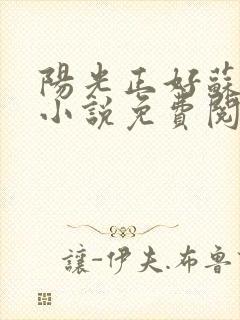 陽光正好蘇
小說免費閱
讓-伊夫.布魯